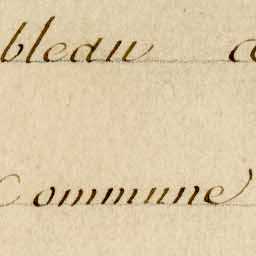 bleau
Commune